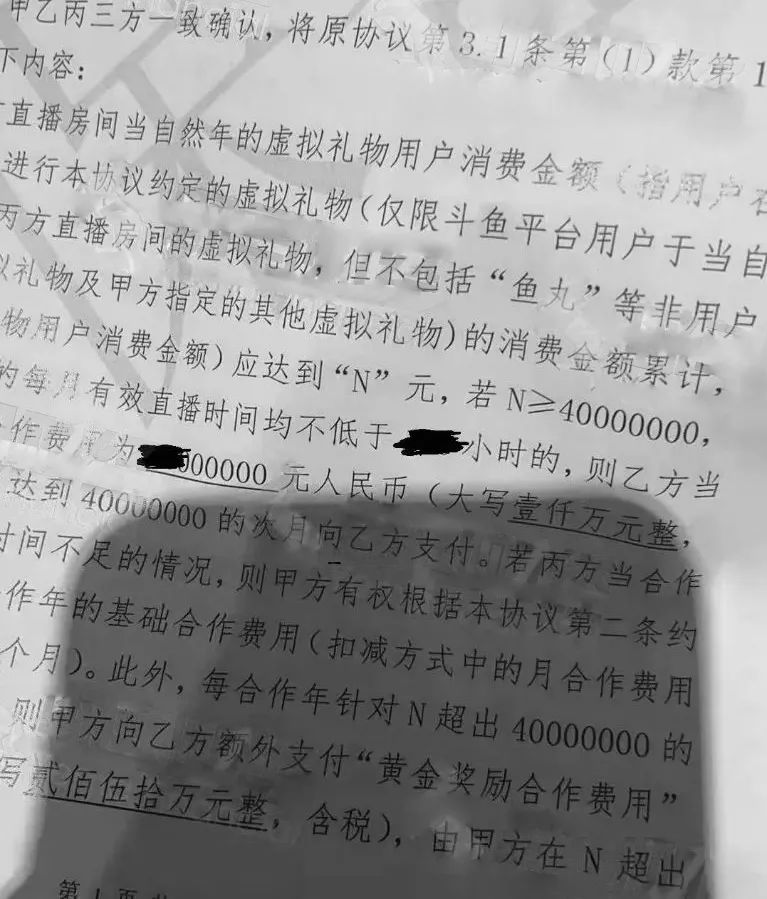 甲乙丙三方一致确认，将原协议第3.1条第（1）款第1
下内容：
直播房间当自然年的虚拟礼物用户消费金额（指用户在
进行本协议约定的虚拟礼物（仅限斗鱼平台用户于当自
丙方直播房间的虚拟礼物，但不包括“鱼丸”等非用户
以礼物及甲方指定的其他虚拟礼物）的消费金额累计，
物用户消费金额）应达到“N”元，若N≥40000000，
的每月有效直播时间均不低于 小时的，则乙方当
作费用为 000000 元人民币（大写壹仟万元整，
达到40000000的次月向乙方支付。若丙方当合作
时间不足的情况，则甲方有权根据本协议第二条约
作年的基础合作费用（扣减方式中的月合作费用
个月）。此外，每合作年针对N超出40000000的
则甲方向乙方额外支付“黄金奖励合作费用”
写贰佰伍拾万元整，含税），由甲方在N超出
第1页